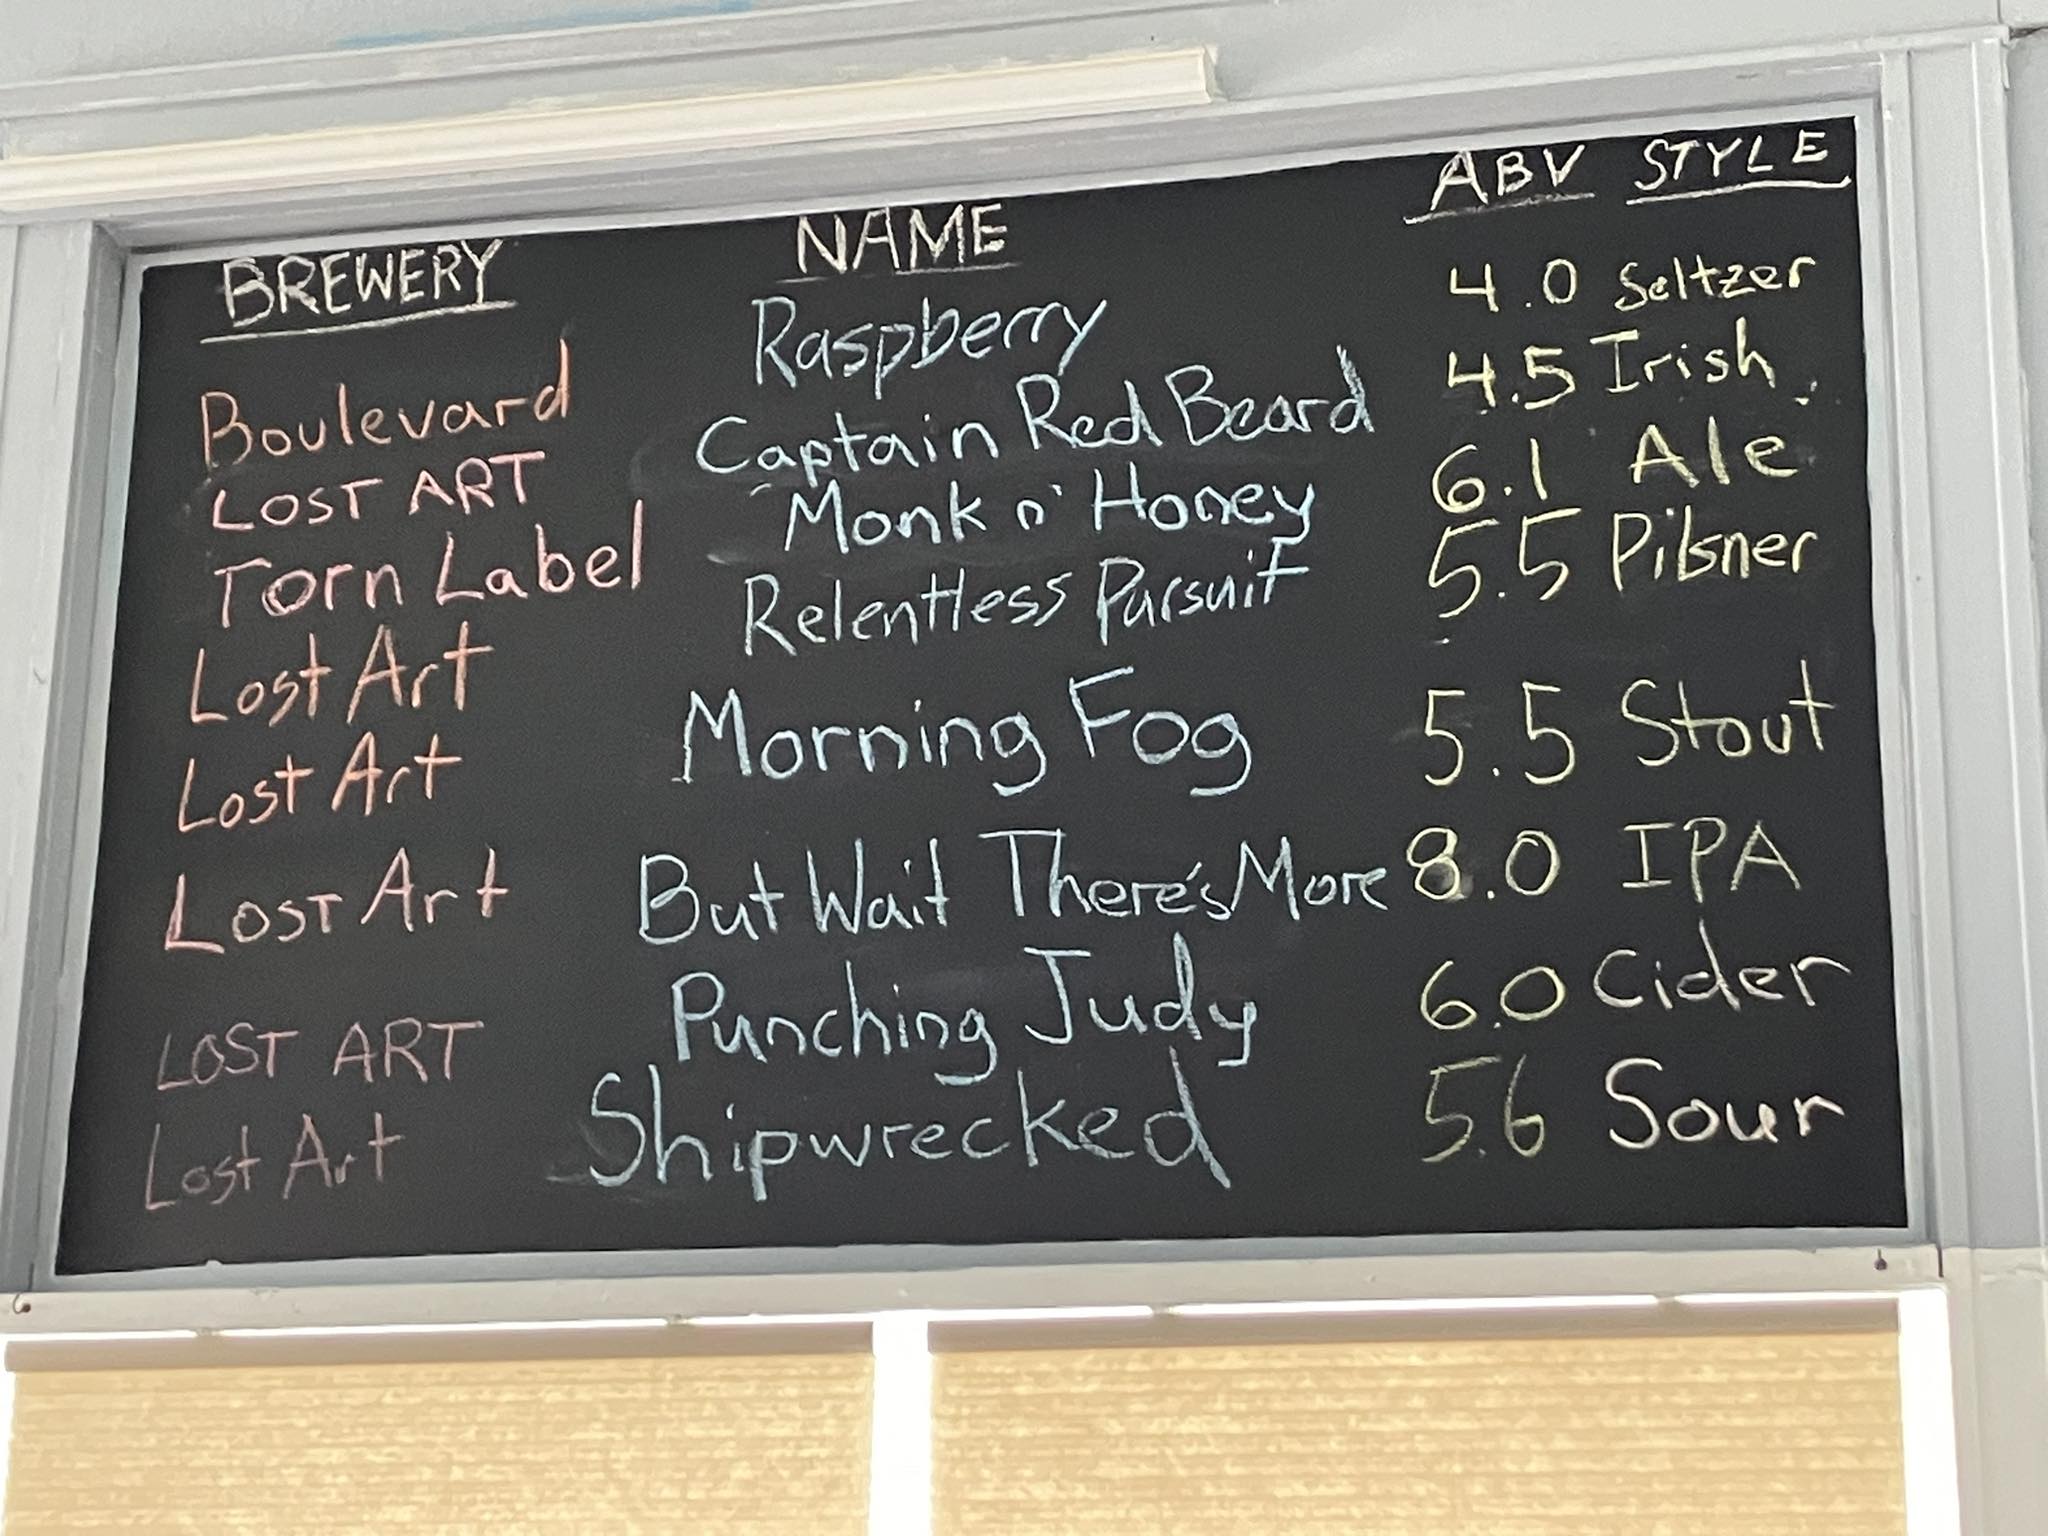 BREWERY NAME ABV STYLE
Boulevard Raspberry 4.0 Seltzer
LOST ART Captain Red Beard 4.5 Irish
Torn Label Monk n' Honey 6.1 Ale
Lost Art Relentless Pursuit 5.5 Pilsner
Lost Art Morning Fog 5.5 Stout
Lost Art But Wait There's More 8.0 IPA
LOST ART Punching Judy 6.0 Cider
Lost Art Shipwrecked 5.6 Sour